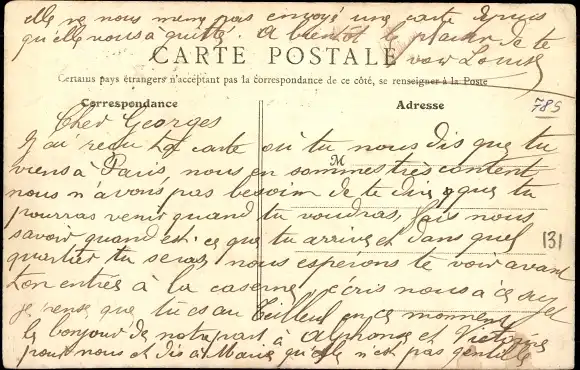 elle ne nous même pas envoyé une carte depuis
qu'elle nous a quitté. A bientôt le plaisir de te
voir Louise
CARTE POSTALE
Certains pays étrangers n'acceptant pas la correspondance de ce côté, se renseigner à la Poste
Correspondance
Adresse
785
Cher Georges
J'ai reçu ta carte où tu nous dis que tu
M
viens à Paris, nous en sommes très content
nous n'avons pas besoin de te dire que tu
pourras venir quand tu voudras, fais nous
savoir quand est-ce que tu arrives et dans quel
131
quartier tu seras, nous espérons te voir avant
ton entrée à la caserne, écris nous à ce
je pense que tu es au Teilleul en ce moment
le bonjour de notre part à Alphonse et Victoire
pour nous et dis à Marie qu'elle n'est pas gentille